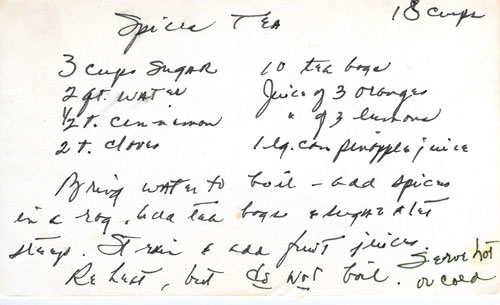 Spiced Tea 18 cups
3 cups sugar 10 tea bags
2 qt. water Juice of 3 oranges
1/2 t. cinnamon " of 3 lemons
2 t. cloves 1 lg. can pineapple juice
Bring water to boil - add spices
in a rag. Add tea bags & sugar & let
steep. Strain & add fruit juices
Reheat, but do not boil. Serve hot
or cold